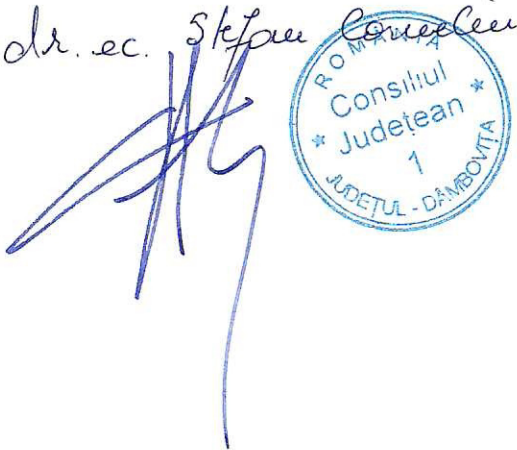 dr. ec. Ștefan Corneliu
ROMÂNIA
Consiliul
Județean
1
JUDEȚUL - DÂMBOVIȚA